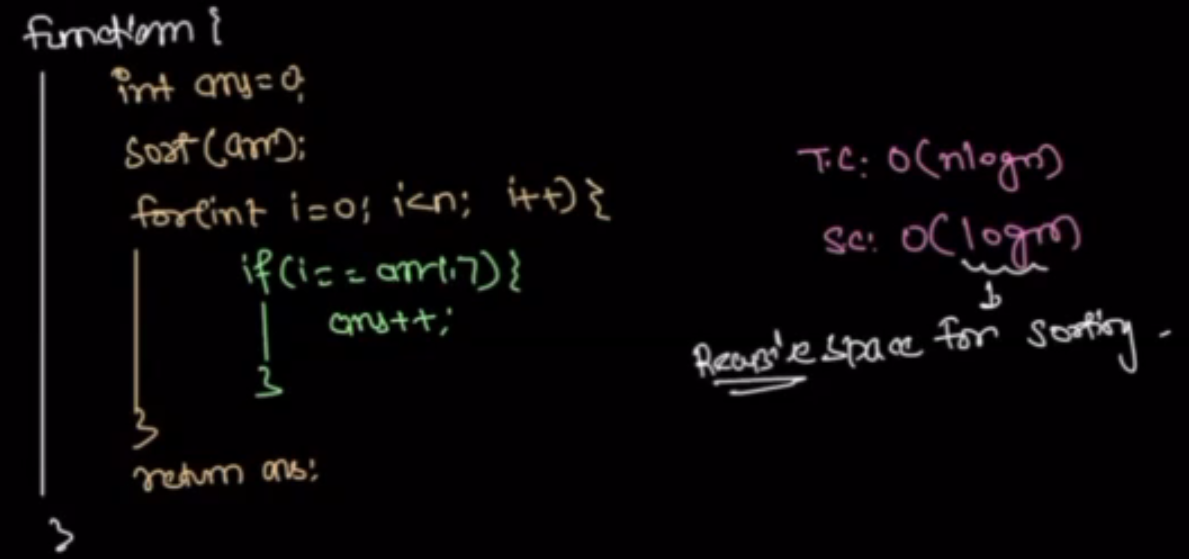 function {
int ans=0;
sort(arr);
for(int i=0; i<n; i++) {
if(i==arr[i]) {
ans++;
}
}
return ans;
}
T.C: O(nlogn)
SC: O(logn)
Recursive space for sorting.